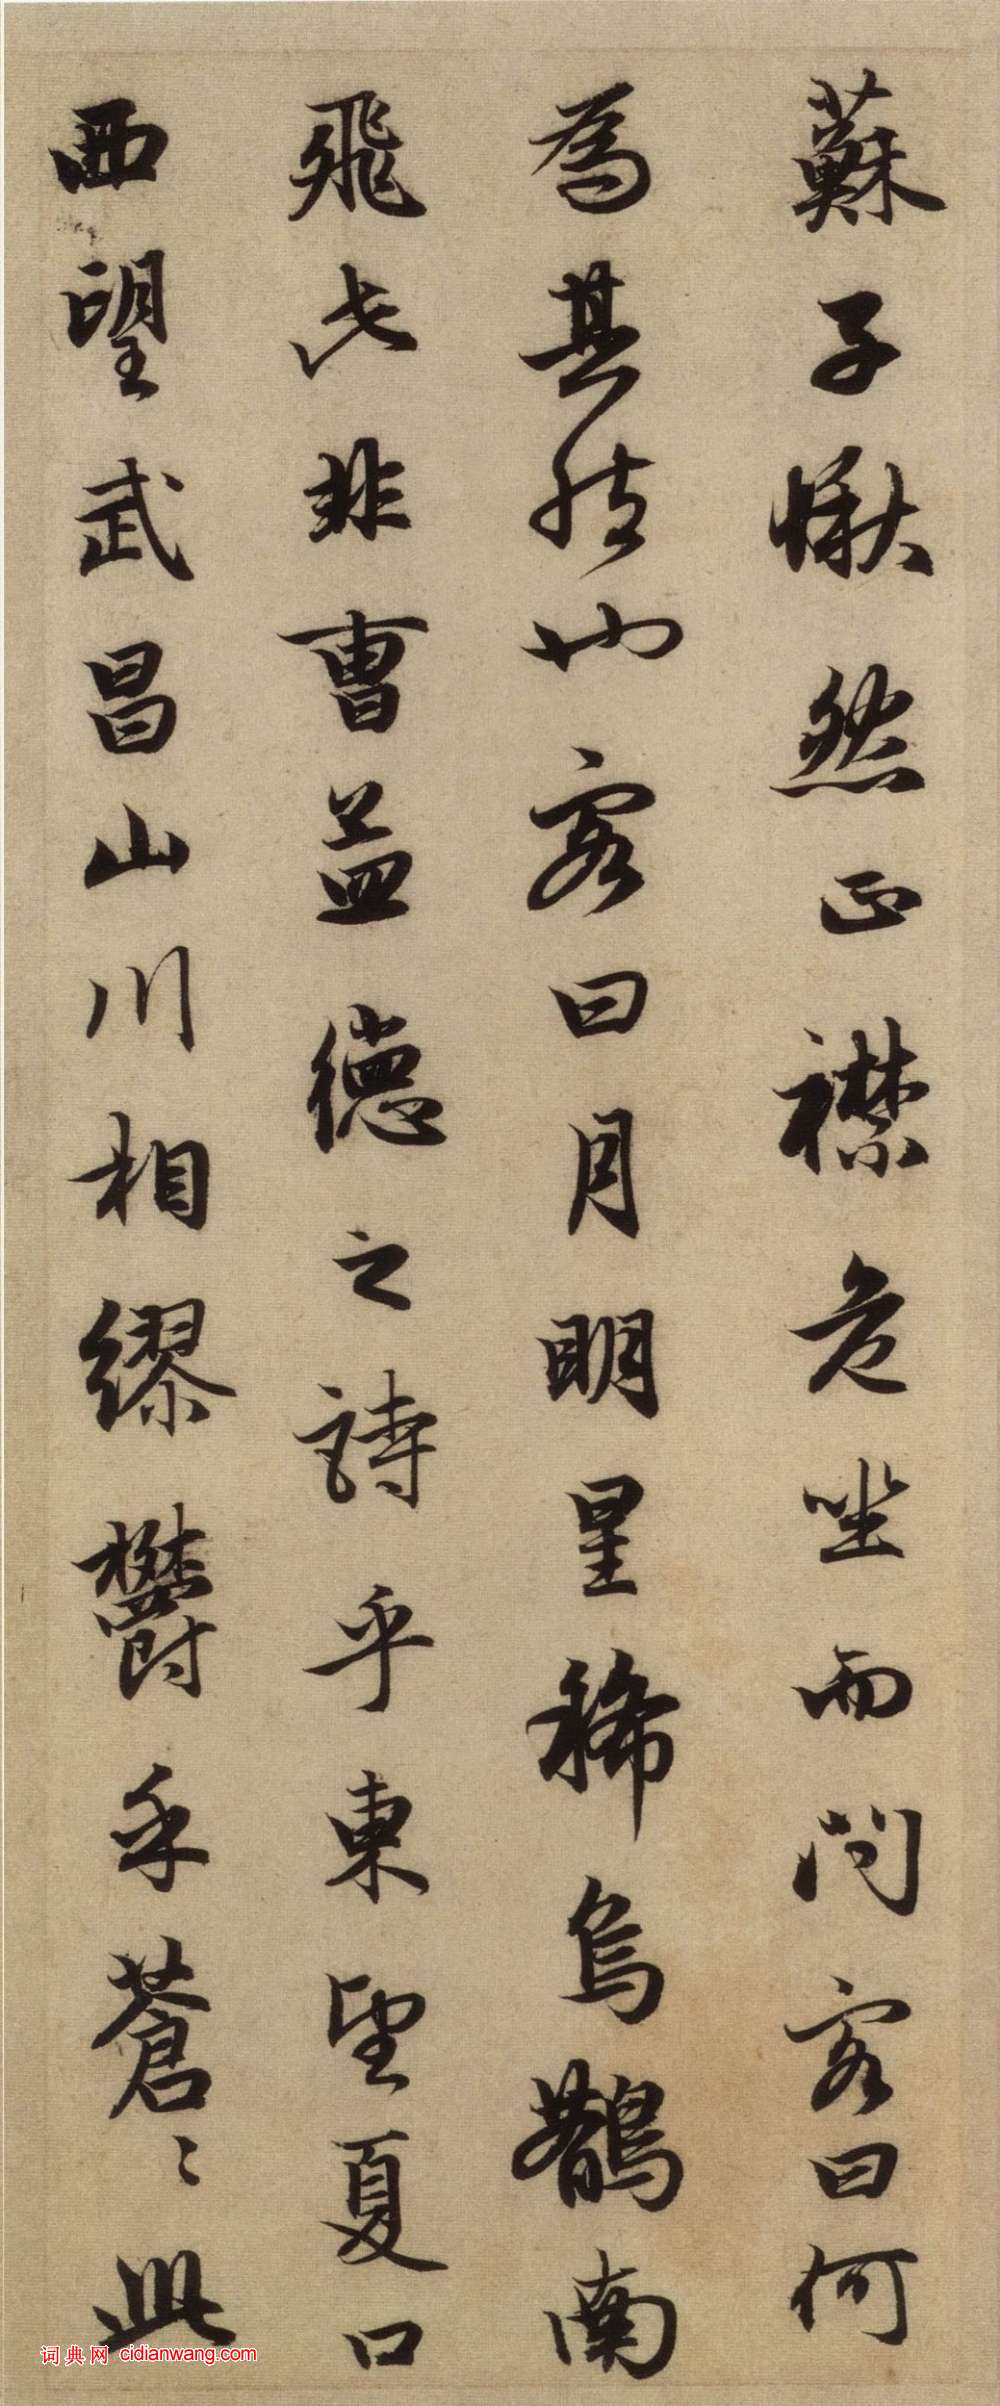 蘇子愀然正襟危坐而問客曰何
為其然也客曰月明星稀烏鵲南
飛此非曹孟德之詩乎東望夏口
西望武昌山川相繆鬱乎蒼〻此
词典网 cidianwang.com